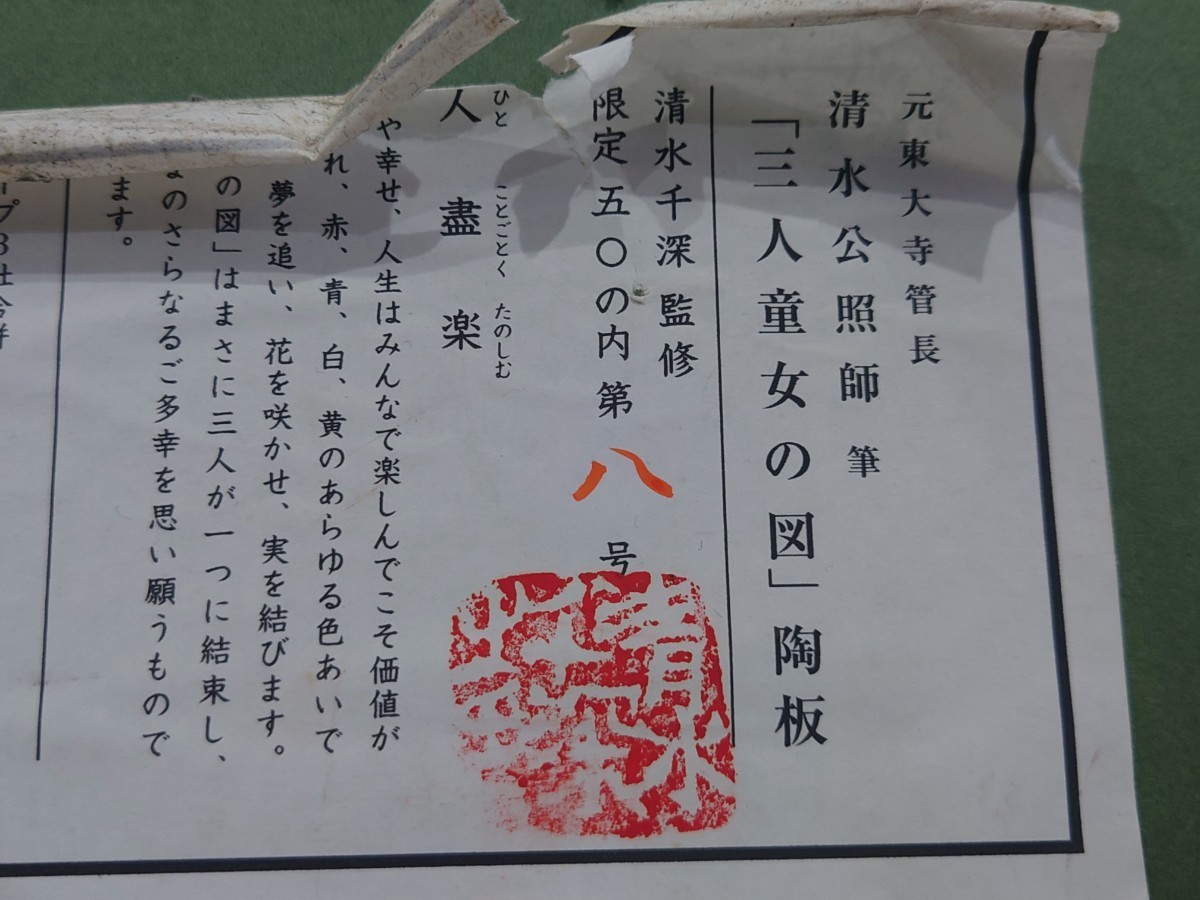 元東大寺管長
清水公照師 筆
「三人童女の図」陶板
清水千深監修
限定五〇の内第八号
清水
人盡楽
ひと ことごとく たのしむ
や幸せ、人生はみんなで楽しんでこそ価値が
れ、赤、青、白、黄のあらゆる色あいで
夢を追い、花を咲かせ、実を結びます。
の図」はまさに三人が一つに結束し、
のさらなるご多幸を思い願うもので
ます。
プ3社合併